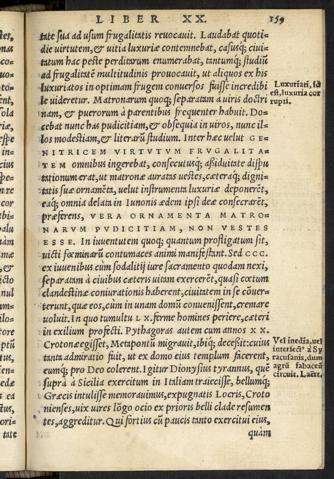 LIBER XX.
159
tate sua ad usum frugalitatis reuocauit. Laudabat quoti-
die uirtutem, & uitia luxuriæ contemnebat, casusq; ciui-
tatum hac peste perditarum enumerabat, tantumq; studiũ
ad frugalitatẽ multitudinis prouocauit, ut aliquos ex his
luxuriatos in optimam frugem conuersos fuisse incredibi
le uideretur. Matronarum quoq; separatam à uiris doctri
nam, & puerorum à parentibus frequenter habuit. Do-
cebat nunc has pudicitiam, & obsequia in uiros, nunc il-
los modestiam, & literarũ studium. Inter hæc uelut GE-
NITRICEM VIRTVTVM FRVGALITA-
TEM omnibus ingerebat, consecutusq; assiduitate dispu
tationum erat, ut matronæ auratas uestes, cæteraq; digni-
tatis suæ ornamẽta, uelut instrumenta luxuriæ deponerẽt,
eaq; omnia delata in Iunonis ædem ipsi deæ consecrarẽt,
præferens, VERA ORNAMENTA MATRO-
NARVM PVDICITIAM, NON VESTES
ESSE. In iuuentutem quoq; quantum profligatum sit,
uicti fœminarũ contumaces animi manifestant. Sed CCC.
ex iuuenibus cum sodalitij iure sacramento quodam nexi,
separatam à ciuibus cæteris uitam exercerẽt, quasi cœtum
clandestinæ coniurationis haberent, ciuitatem in se cõuer-
terunt, quæ eos, cum in unam domũ conuenissent, cremare
uoluit. In quo tumultu LX. ferme homines periere, cæteri
in exilium profecti. Pythagoras autem cum annos XX.
Crotonæ egisset, Metapontũ migrauit, ibiq; decessit: cuius
tanta admiratio fuit, ut ex domo eius templum facerent,
eumq; pro Deo colerent. Igitur Dionysius tyrannus, quẽ
supra à Sicilia exercitum in Italiam traiecisse, bellumq;
Græcis intulisse memorauimus, expugnatis Locris, Croto
nienses, uix uires lõgo ocio ex prioris belli clade resumen
tes, aggreditur. Qui fortius cũ paucis tanto exercitui eius,
quàm
Luxuriari, id
est, luxuria cor
rupti.
Vel inedia, uel
interfectꝰ à Sy
racusanis, dum
agrũ fabaceũ
circuit. Laërt.